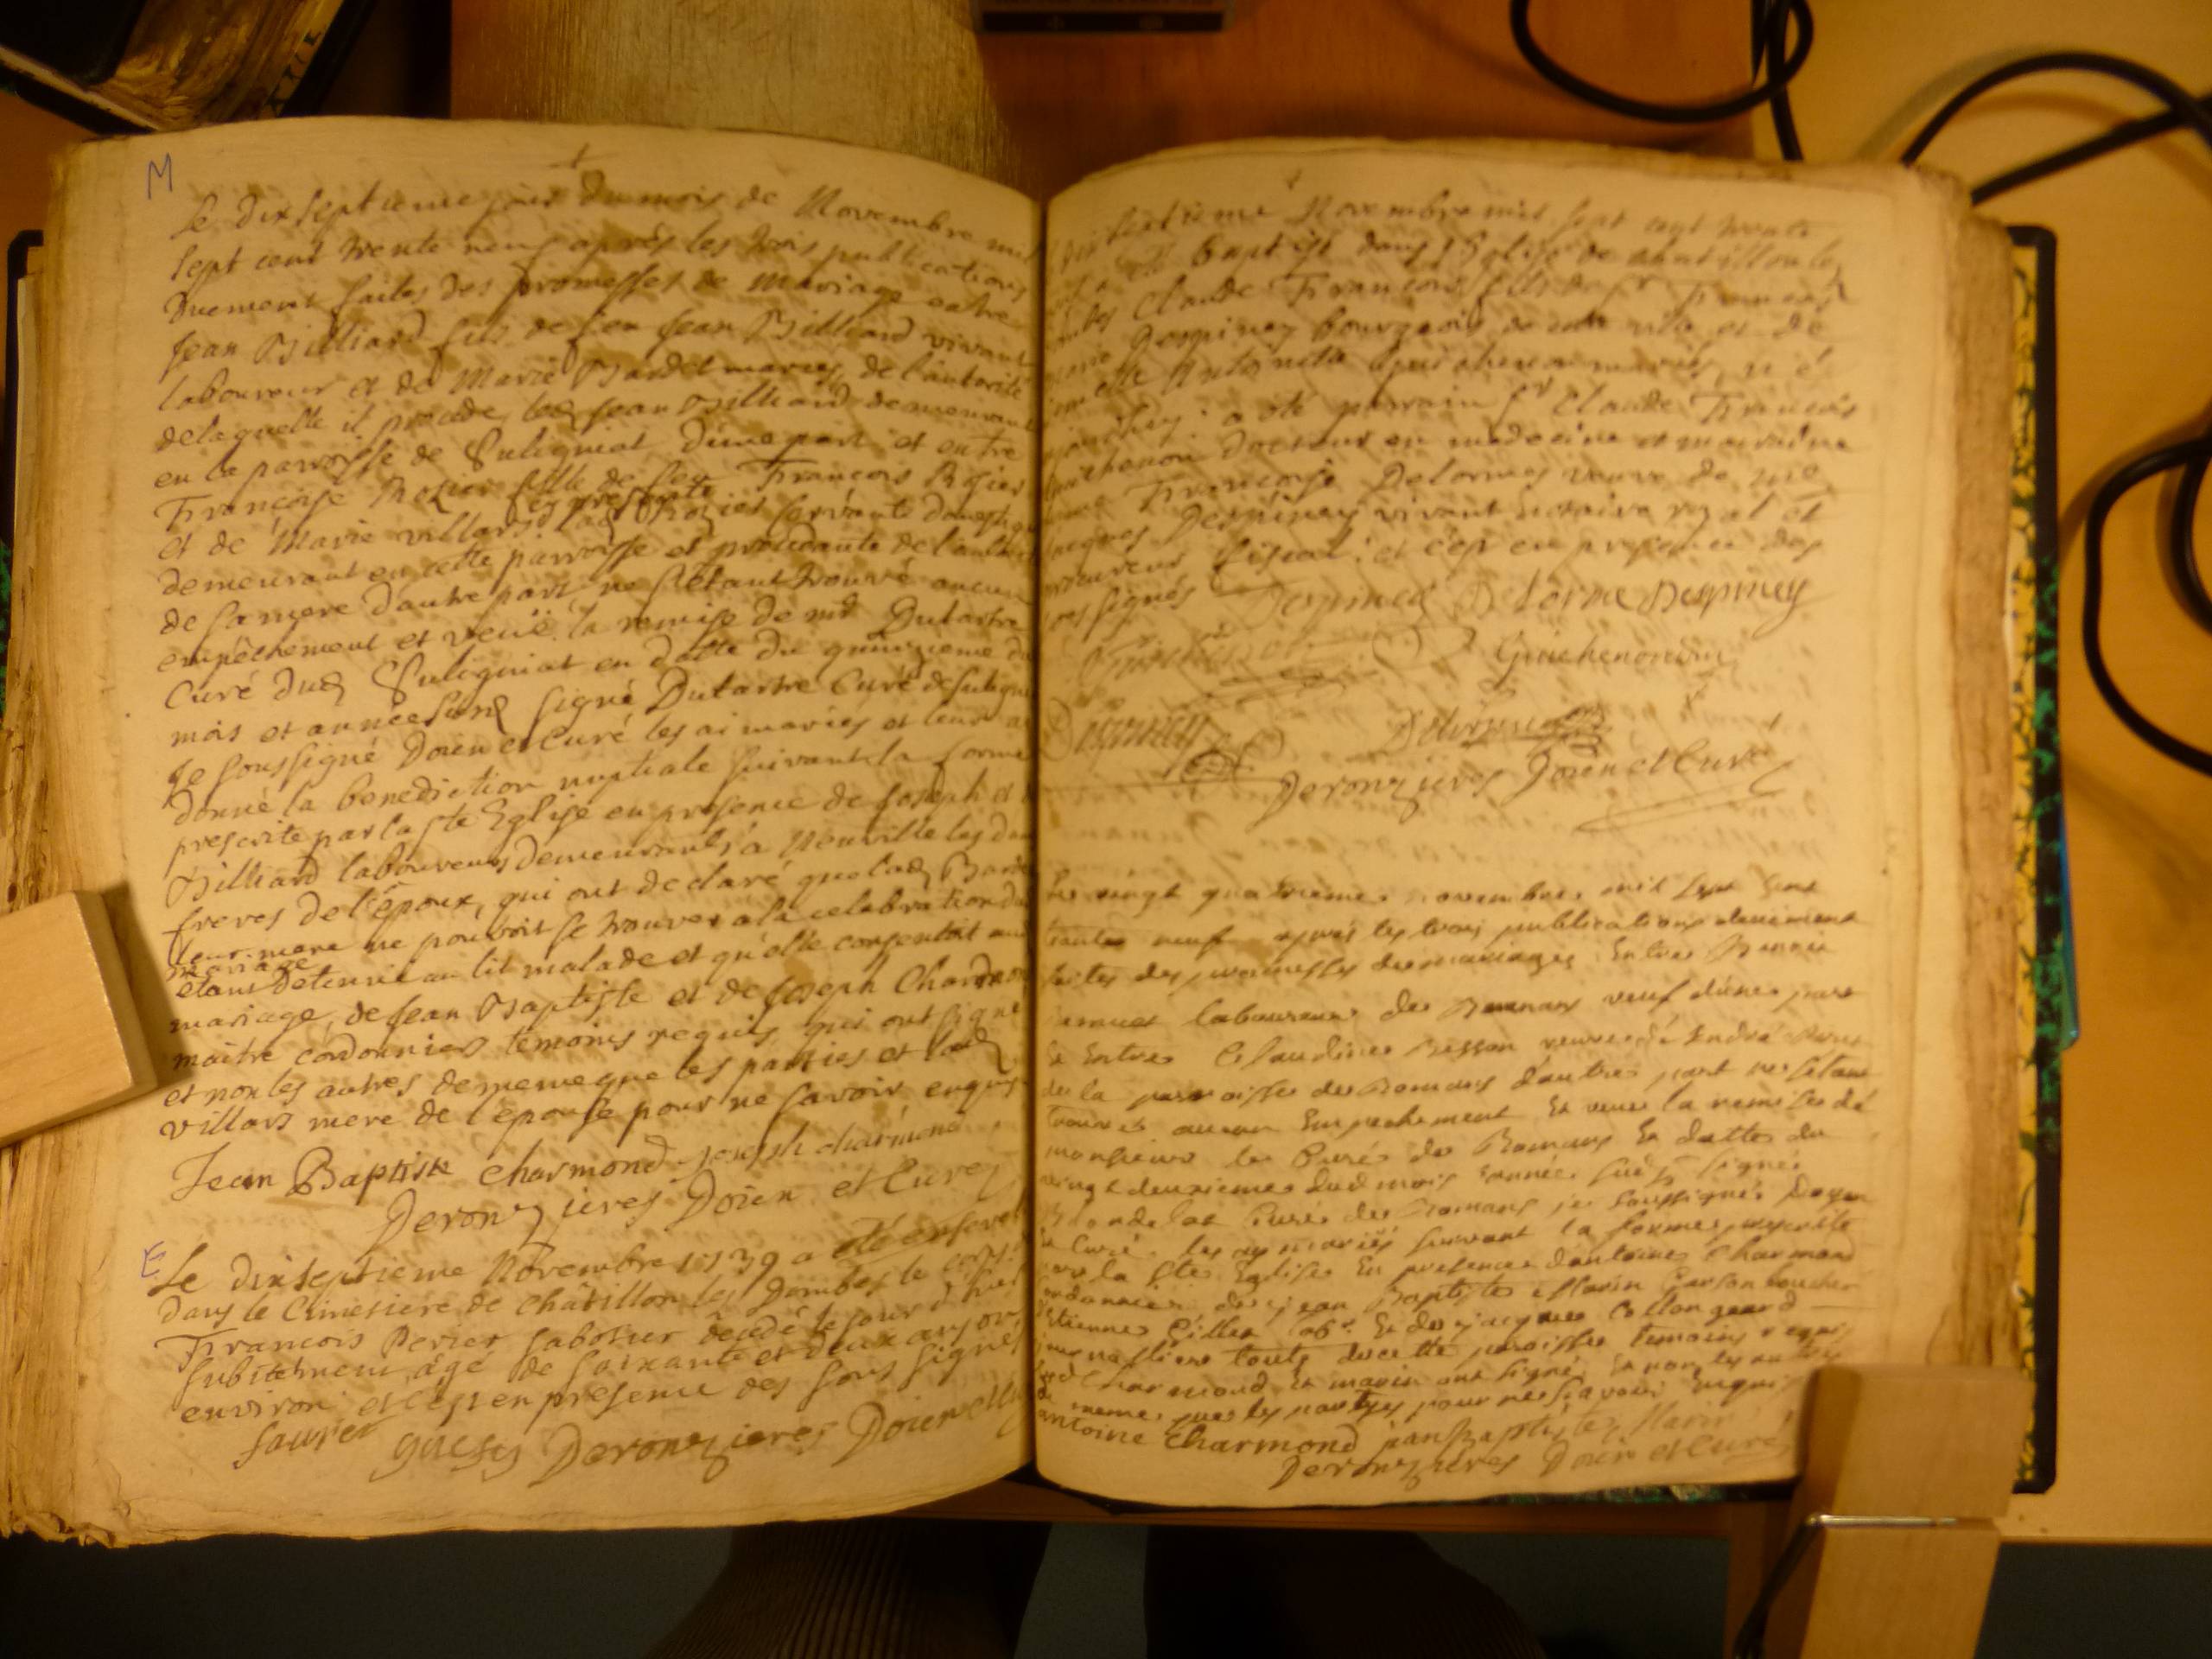 M
Le dixseptieme jour du mois de Novembre mil
sept cent trente neuf après les trois publications
duement faites des promesses de mariage entre
Jean Billiard fils de feu Jean Billiard vivant
laboureur et de Marie Bardet mariés, de l'autorité
delaquelle il procede, led Jean Billiard demeurant
en la parroisse de Suligniat d'une part et entre
Françoise Rozier fille de feu François Rosier
et de Marie villars cy presente lad Rozier servante domestique
demeurant en cette parroisse et procedante de l'autorité
de sa mere d'autre part ne s'étant trouvé aucun
empêchement et veuë la remise de mr Dutartre
Curé dud Suligniat en datte du quinzieme du
mois et année susd signé Dutartre Curé de Suligniat
Je soussigné Doien et Curé les ai mariés et leur ai
donné la benediction nuptiale suivant la forme
prescrite par la ste Eglise en presence de Joseph et
Billiard laboureurs demeurants à Neuville les dames
freres de l'époux, qui ont declaré que lad Bardet
leur mere ne pouvoit se trouver a la celebration du
mariage
étant detenuë au lit malade et qu'elle consentoit aud
mariage, de Jean Baptiste et de Joseph Charmond
maitre cordonniers temoins requis qui ont signé
et non les autres de meme que les parties et lad
villars mere de l'epouse pour ne savoir enquis
Jean Baptiste Charmond joseph charmond
Deronzieres Doien et Curé
E
Le dixseptieme Novembre 1739 a été enseveli
dans le Cimetiere de Châtillon les Dombes le corps de
François Perier sabotier decedé le jour d'hier
subitement âgé de soixante et deux ans ou
environ et c'est en presence des sous signés
sauret
guesy Deronzieres Doien et Curé
dix septieme Novembre mil sept cent trente
neuf a été Baptisé dans l'Eglise de Chatillon les
Dombes Claude François fils de sr François
Marie Despiney bourgeois de cette ville et de
demoiselle Antoinette Guichenon mariés, né
a été parrain sr Claude François
Guichenon Docteur en medecine et marraine
dame Françoise Delorme veuve de me
Jacques Despiney vivant notaire royal et
procureur fiscal: et c'est en presence des
soussignés Despiney Delorme Despiney
Guichenon
Guichenon dm
Despiney Delorme
Deronzieres Doien et Curé
Le vingt quatrieme novembre mil sept cent
trente neuf apres les trois publications deuement
faites des promesses de mariage Entre Benoit
laboureur de Romans veuf d'une part
Et Entre Claudine Besson veuve d'André
de la parroisse de Romans d'autre part ne s'étant
trouvé aucun Empechement Et veue la remise de
monsieur le Curé de Romans En datte du
vingt deuxieme dud mois Et année susd signé
Curé de Romans je soussigné Doyen
Et Curé les ay mariés suivant la forme prescrite
par la Ste Eglise En presence d'antoine Charmond
cordonnier de jean Baptiste Marin Garson boucher
d'Etienne Gillet labr. Et de jacques Collongeard
touts de cette paroisse temoins requis
led Charmond Et marin ont signé Et non les autres
de meme que les partyes pour ne sçavoir Enquis
antoine Charmond jean Baptiste Marin
Deronzieres Doien et Curé